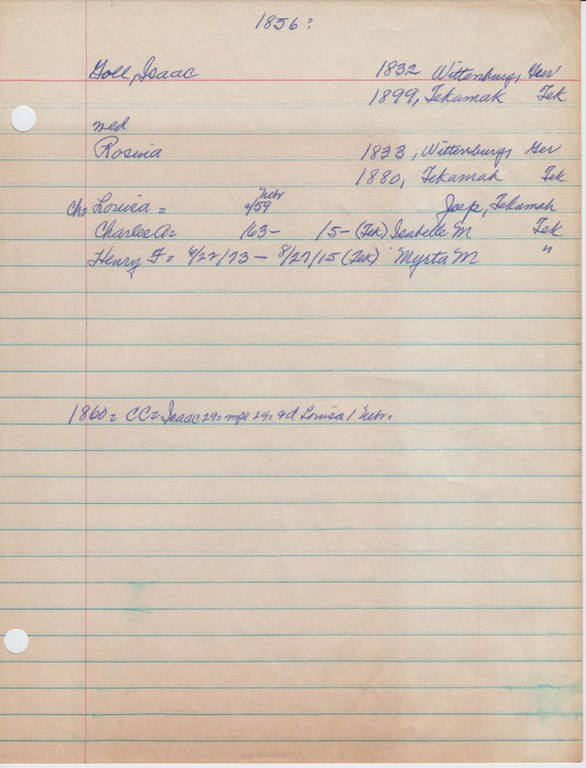 1856?
Goll, Isaac 1832 Wittenburg, Ger
1899, Tekamah Tek
wed
Rosina 1833, Wittenburg, Ger
1880, Tekamah Tek
Nebr
Ch= Louisa = /59 Jos p, Tekamah
Charles A= /63- 15- (Tek) Isabelle M Tek
Henry F= 4/22/73 - 8/27/15 (Tek) Myrta M "
1860= CC= Isaac 29= wife 29= d Louisa 1 Nebr.